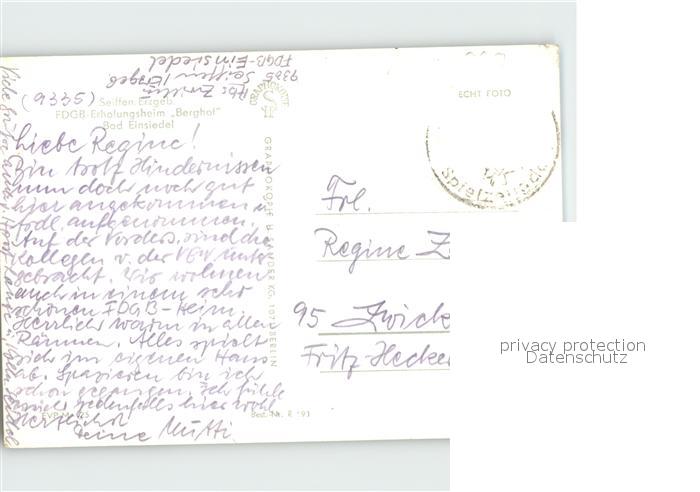 Abs. Zwillin
Seiffen / Erzgeb.
9335
FDGB-Einsiedel
(9335) Seiffen Erzgeb.
FDGB-Erholungsheim „Berghof"
Bad Einsiedel
Liebe Regine!
Bin trotz Hindernissen
nun doch noch gut
hier angekommen u.
frdl. aufgenommen.
Auf der Vorders. sind die
Kollegen v. der VGW unter
gebracht. Wir wohnen
auch in einem sehr
schönen FDGB-Heim.
Herrlich warm in allen
Räumen. Alles spielt
sich im eigenen Haus
ab. Spazieren bin ich
schon gegangen. Ich fühle
mich jedenfalls hier wohl
Herzlichst
Deine Mutti.
EVP M
Best.-Nr. R 193
GRAPHOKOPIE H. SANDER KG, 1071 BERLIN
ECHT FOTO
Spielzeug
Frl.
Regine Z
95 Zwick
Fritz Hecker
privacy protection
Datenschutz